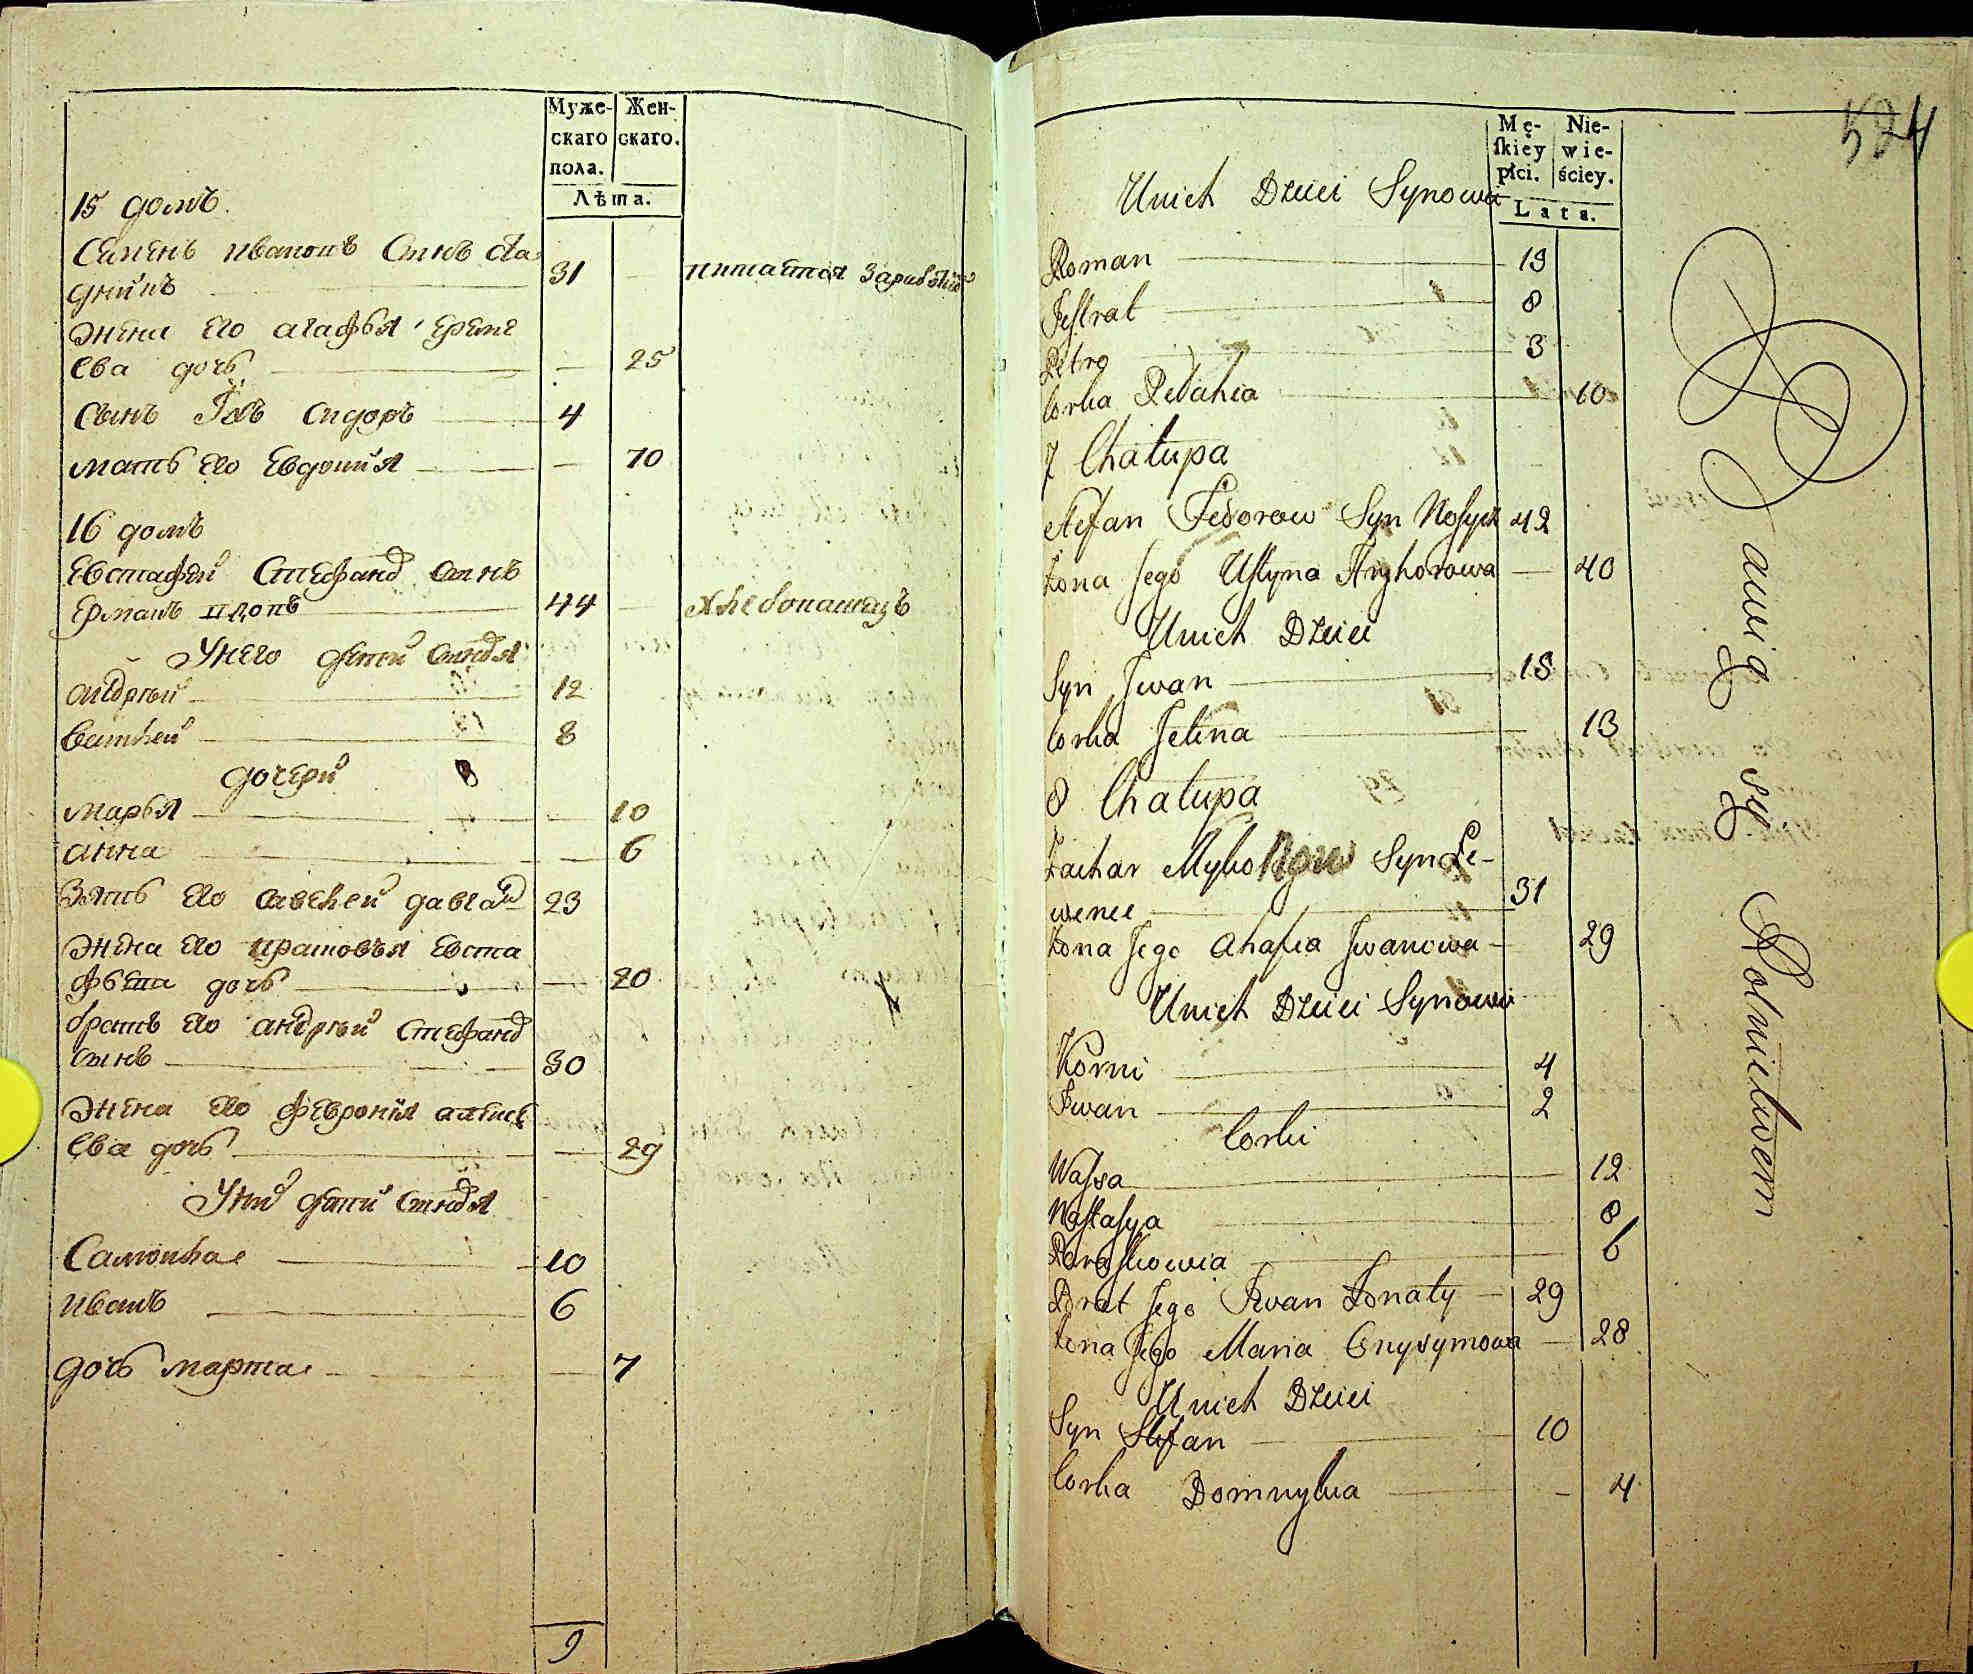 Муже-
скаго
пола.
Жен-
скаго.
Лѣта.
15 домъ
Семенъ Ивановъ сынъ Ста
дникъ 31 питается
жена его агафья ереме
ева дочь 25
сынъ Іовъ сидоръ 4
мать его Евдокия 70
16 домъ
Евстафей Стефанд сынъ
44 хлебопашецъ
У него дети сыновя
андрей 12
8
дочери 8
марья 10
анна 6
зять его савелей 23
жена его Евста
фьева дочь 20
братъ его андрей Стефанд
сынъ 30
жена его феврония алексе
ева дочь 29
У них дети сыновя
Самоила 10
иванъ 6
дочь марта 7
9
524
Mę-
ſkiéy
płci.
Nie-
wie-
ściey.
Lata.
Unich Dzieci Synowi
Roman 19
Jeſtrat 8
Petro 3
Corka Pelahia 10
7 Chałupa
Stefan Fedorow Syn Noſyk 42
Żona Jego Uſtyna Hryhorowa 40
Unich Dzieci
Syn Jwan 18
Corka Jelena 13
8 Chałupa
Zachar Mykołaow Syn Le-
wenec 31
Żona Jego Ahafia Jwanowa 29
Unich Dzieci Synowi
Korni 4
Jwan 2
Corki
Waſsa 12
Naſtaſya 8
Paraſkowia 6
Brat Jego Jwan Żonaty 29
Żona Jego Maria Onysymowa 28
Unich Dzieci
Syn Stefan 10
Corka Domnykia 4
Bawią się Rolnictwem